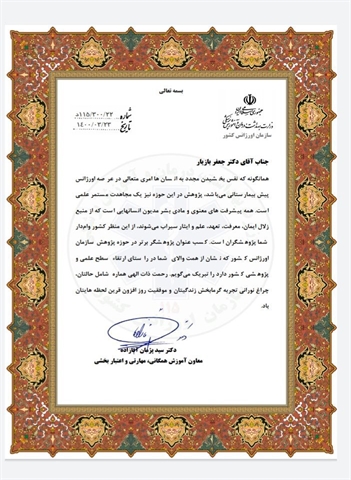 بسمه تعالی
شماره ۱۱۵/۳۰۰/۲۲د
تاریخ ۱۴۰۰/۰۳/۲۳
سازمان اورژانس کشور
جناب آقای دکتر جعفر بازیار
همانگونه که نفس بخشیدن مجدد به انسان ها امری متعالی در عرصه اورژانس
پیش بیمارستانی می باشد، پژوهش در این حوزه نیز یک مجاهدت مستمر علمی
است. همه پیشرفت های معنوی و مادی بشر مدیون انسانهایی است که از منبع
زلال ایمان، معرفت، تعهد، علم و ایثار سیراب می‌شوند، از این منظر کشور وام‌دار
شما پژوهشگران است. کسب عنوان پژوهشگر برتر در حوزه پژوهش سازمان
اورژانس کشور که نشان از همت والای شما در راستای ارتقاء سطح علمی و
پژوهشی کشور دارد را تبریک می‌گویم. رحمت ذات الهی همواره شامل حالتان،
چراغ نورانی تجربه گرمابخش زندگیتان و موفقیت روز افزون قرین لحظه هایتان
باد
دکتر سید پژمان آقازاده
معاون آموزش همگانی، مهارتی و اعتبار بخشی